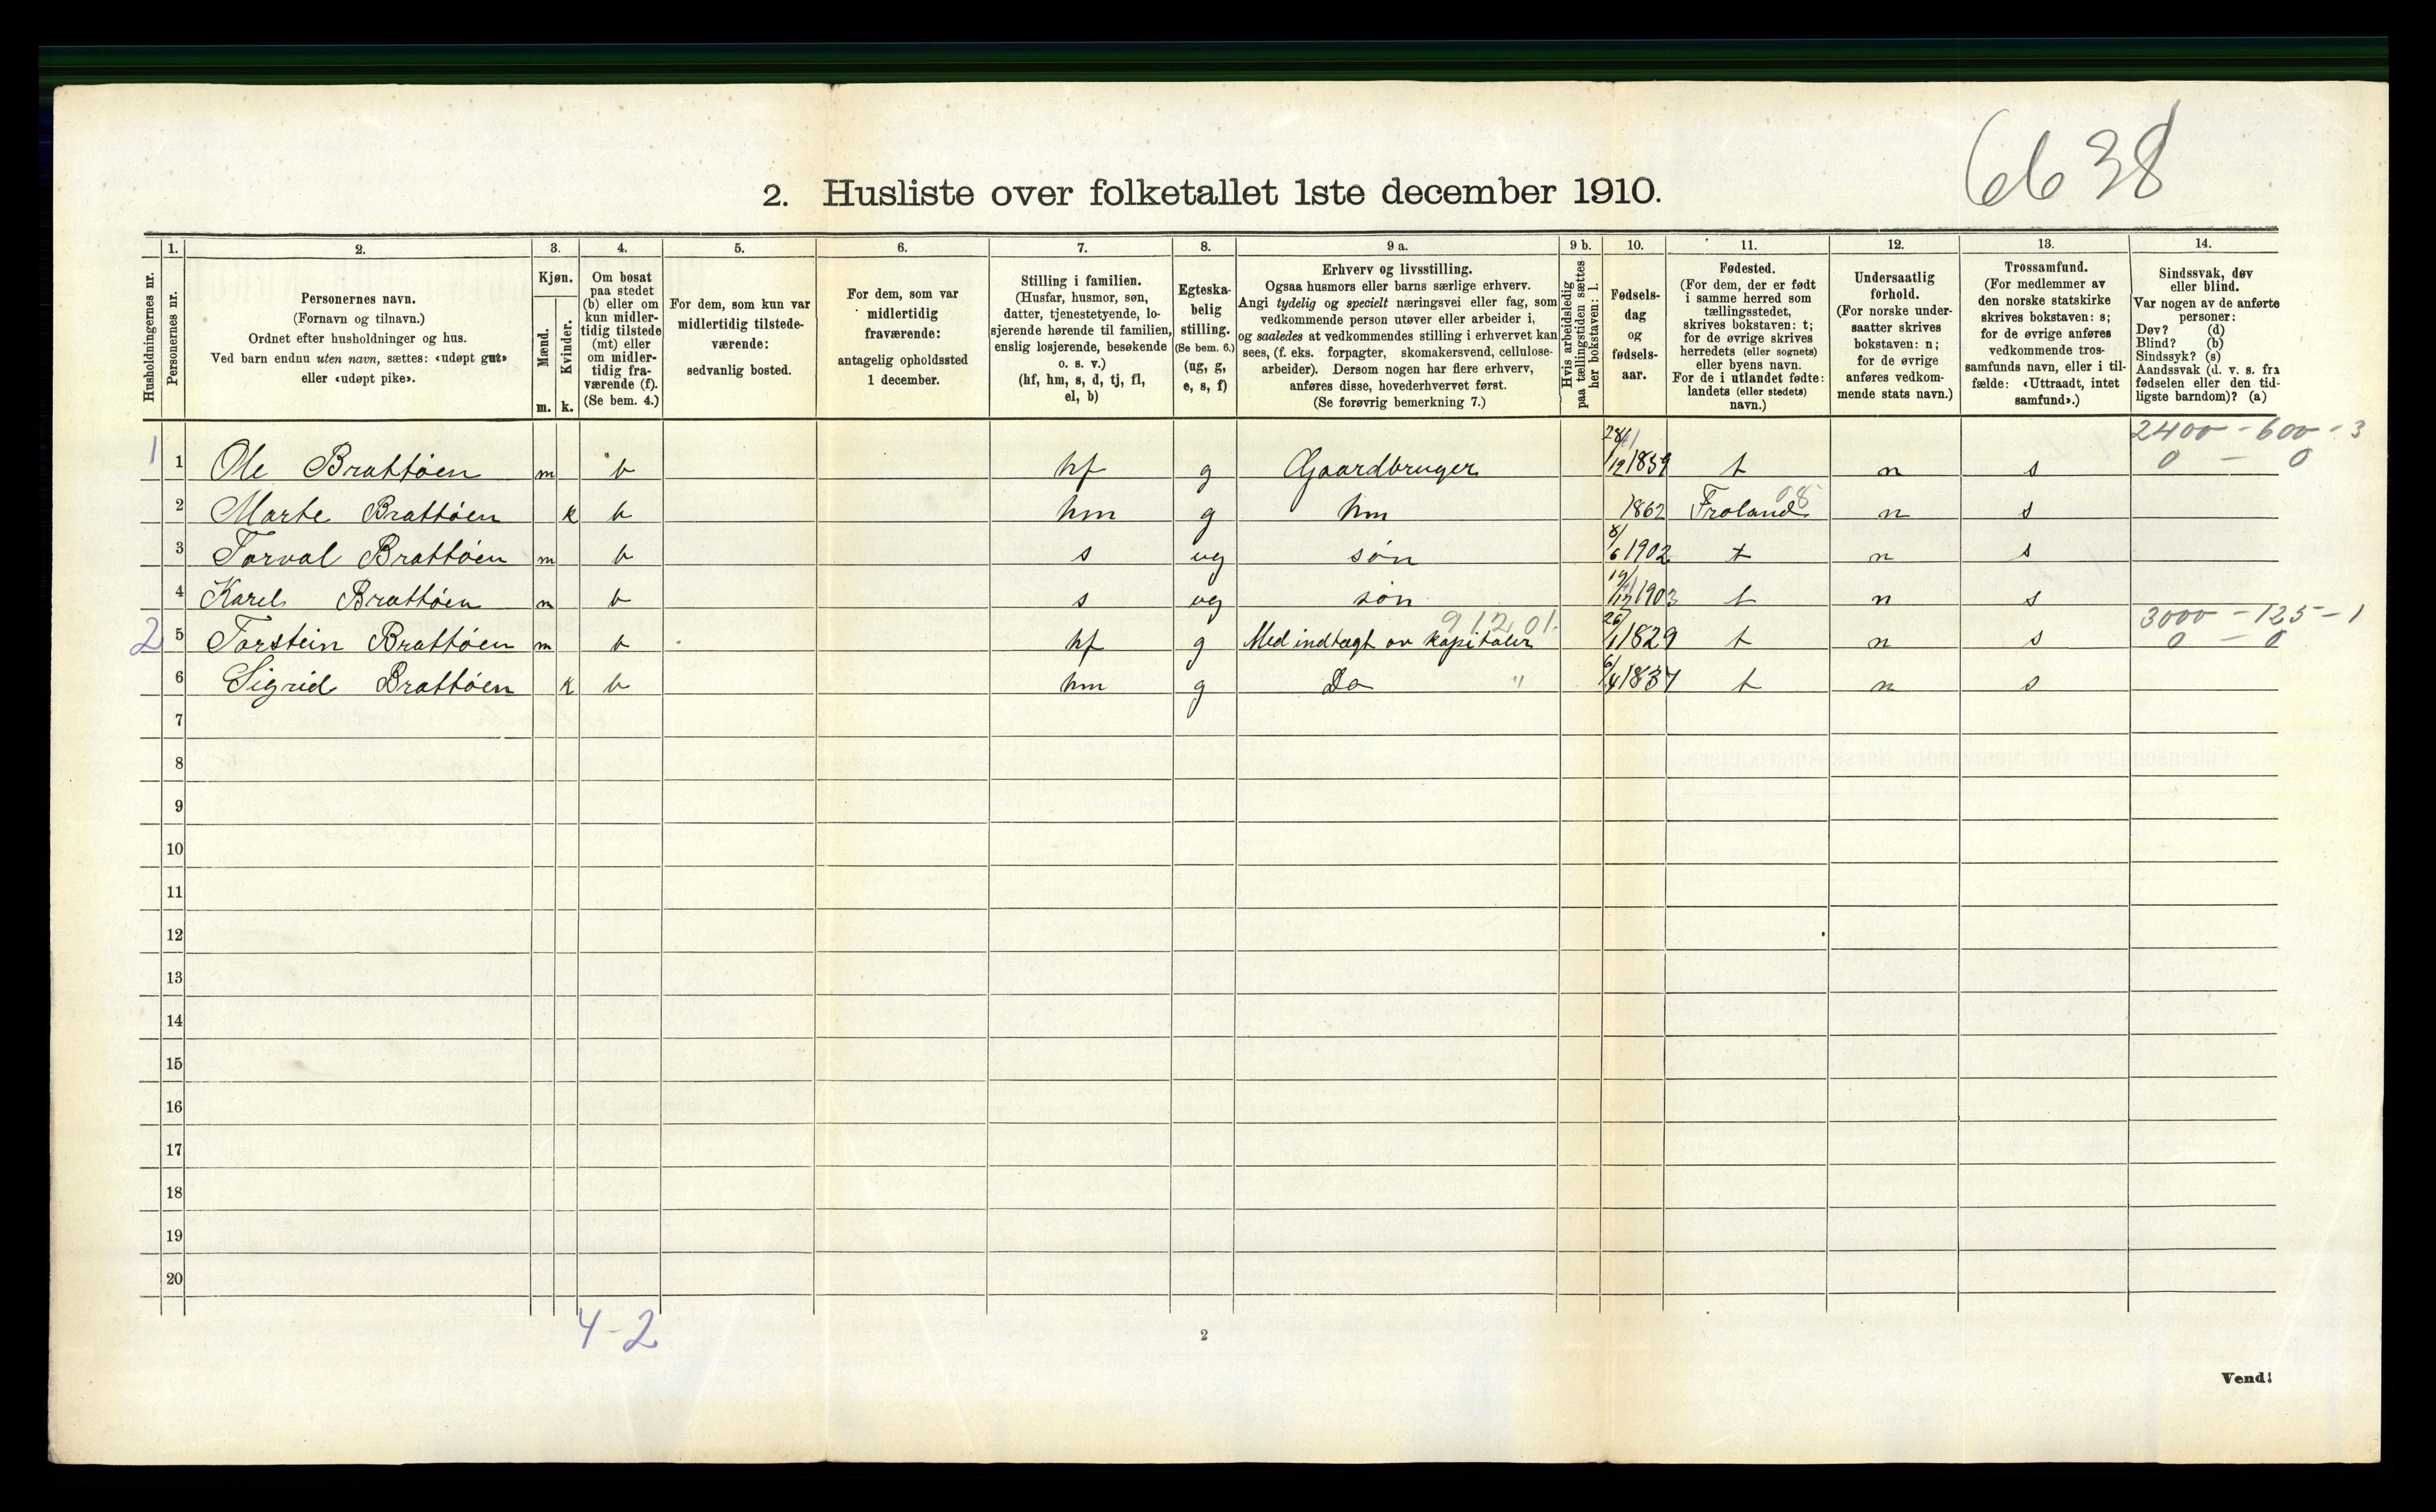 6638
2. Husliste over folketallet 1ste december 1910.
Husholdningernes nr.
1.
Personernes nr.
2.
Personernes navn.
(Fornavn og tilnavn.)
Ordnet efter husholdninger og hus.
Ved barn endnu uten navn, sættes: «udøpt gut»
eller «udøpt pike».
3.
Kjøn.
Mænd.
m.
Kvinder.
k.
4.
Om bosat
paa stedet
(b) eller om
kun midler-
tidig tilstede
(mt) eller
om midler-
tidig fra-
værende (f).
(Se bem. 4.)
5.
For dem, som kun var
midlertidig tilstede-
værende:
sedvanlig bosted.
6.
For dem, som var
midlertidig
fraværende:
antagelig opholdssted
1 december.
7.
Stilling i familien.
(Husfar, husmor, søn,
datter, tjenestetyende, lo-
sjerende hørende til familien,
enslig losjerende, besøkende
o. s. v.)
(hf, hm, s, d, tj, fl,
el, b)
8.
Egteska-
belig
stilling.
(Se bem. 6.)
(ug, g,
e, s, f)
9 a.
Erhverv og livsstilling.
Ogsaa husmors eller barns særlige erhverv.
Angi tydelig og specielt næringsvei eller fag, som
vedkommende person utøver eller arbeider i,
og saaledes at vedkommendes stilling i erhvervet kan
sees, (f. eks. forpagter, skomakersvend, cellulose-
arbeider). Dersom nogen har flere erhverv,
anføres disse, hovederhvervet først.
(Se forøvrig bemerkning 7.)
9 b.
Hvis arbeidsledig
paa tællingstiden sættes
her bokstaven: l.
10.
Fødsels-
dag
og
fødsels-
aar.
11.
Fødested.
(For dem, der er født
i samme herred som
tællingsstedet,
skrives bokstaven: t;
for de øvrige skrives
herredets (eller sognets)
eller byens navn.
For de i utlandet fødte:
landets (eller stedets)
navn.)
12.
Undersaatlig
forhold.
(For norske under-
saatter skrives
bokstaven: n;
for de øvrige
anføres vedkom-
mende stats navn.)
13.
Trossamfund.
(For medlemmer av
den norske statskirke
skrives bokstaven: s;
for de øvrige anføres
vedkommende tros-
samfunds navn, eller i til-
fælde: «Uttraadt, intet
samfund».)
14.
Sindssvak, døv
eller blind.
Var nogen av de anførte
personer:
Døv? (d)
Blind? (b)
Sindssyk? (s)
Aandssvak (d. v. s. fra
fødselen eller den tid-
ligste barndom)? (a)
2400 - 600 - 3
0 - 0
1 1 Ole Brattøen m b hf g Gaardbruger 28/12 1859 t n s
2 Marte Brattøen k b hm g hm 1862 Froland 08 n s
3 Torval Brattøen m b s ug søn 8/6 1902 t n s
4 Karel Brattøen m b s ug søn 1903 t n s
91201. 3000 - 125 - 1
2 5 Torstein Brattøen m b hf g Med indtægt av kapitaler 26/1 1829 t n s 0 - 0
6 Sigrid Brattøen k b hm g Do " 6/4 1837 t n s
7
8
9
10
11
12
13
14
15
16
17
18
19
20
4-2
2
Vend!